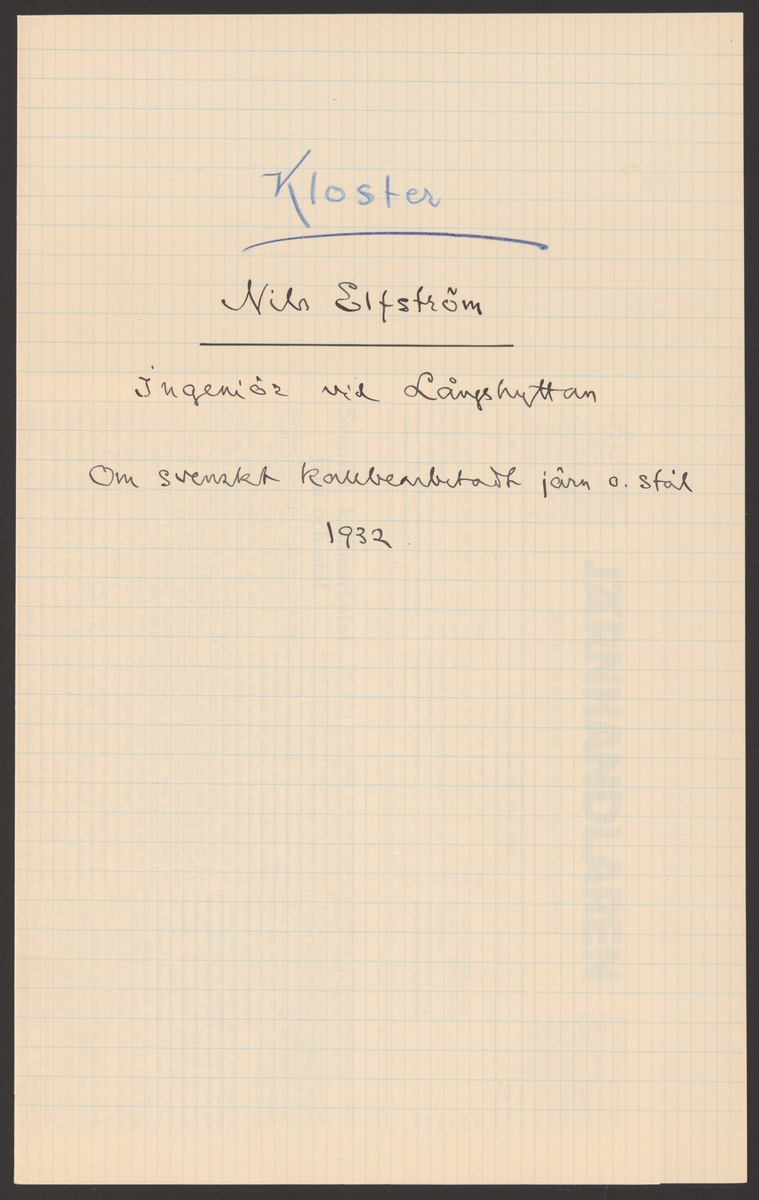 Kloster
Nils Elfström
Ingeniör vid Långshyttan
Om svenskt kallbearbetadt järn o. stål
1932
JÄRNHANDLAREN